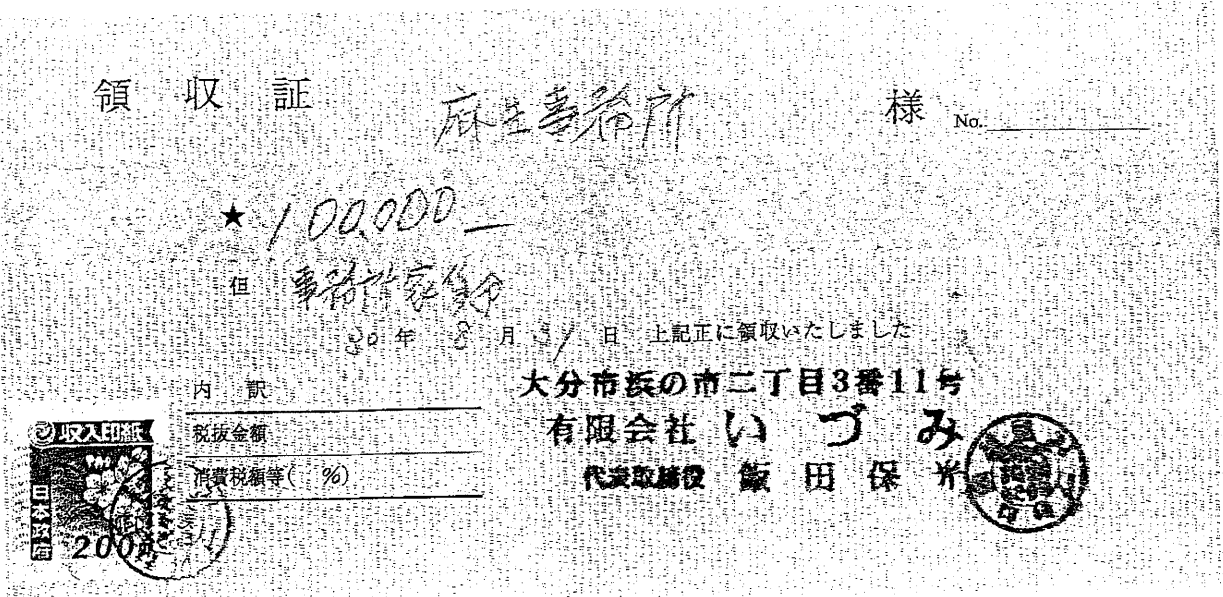 領収証 麻生事務所 様 No.
★ 100,000-
但 事務所家賃金
30年 8月 31日 上記正に領収いたしました
内訳
税抜金額
消費税額等( %)
大分市浜の市二丁目3番11号
有限会社 いづみ
代表取締役 飯田保
収入印紙
日本政府
200円